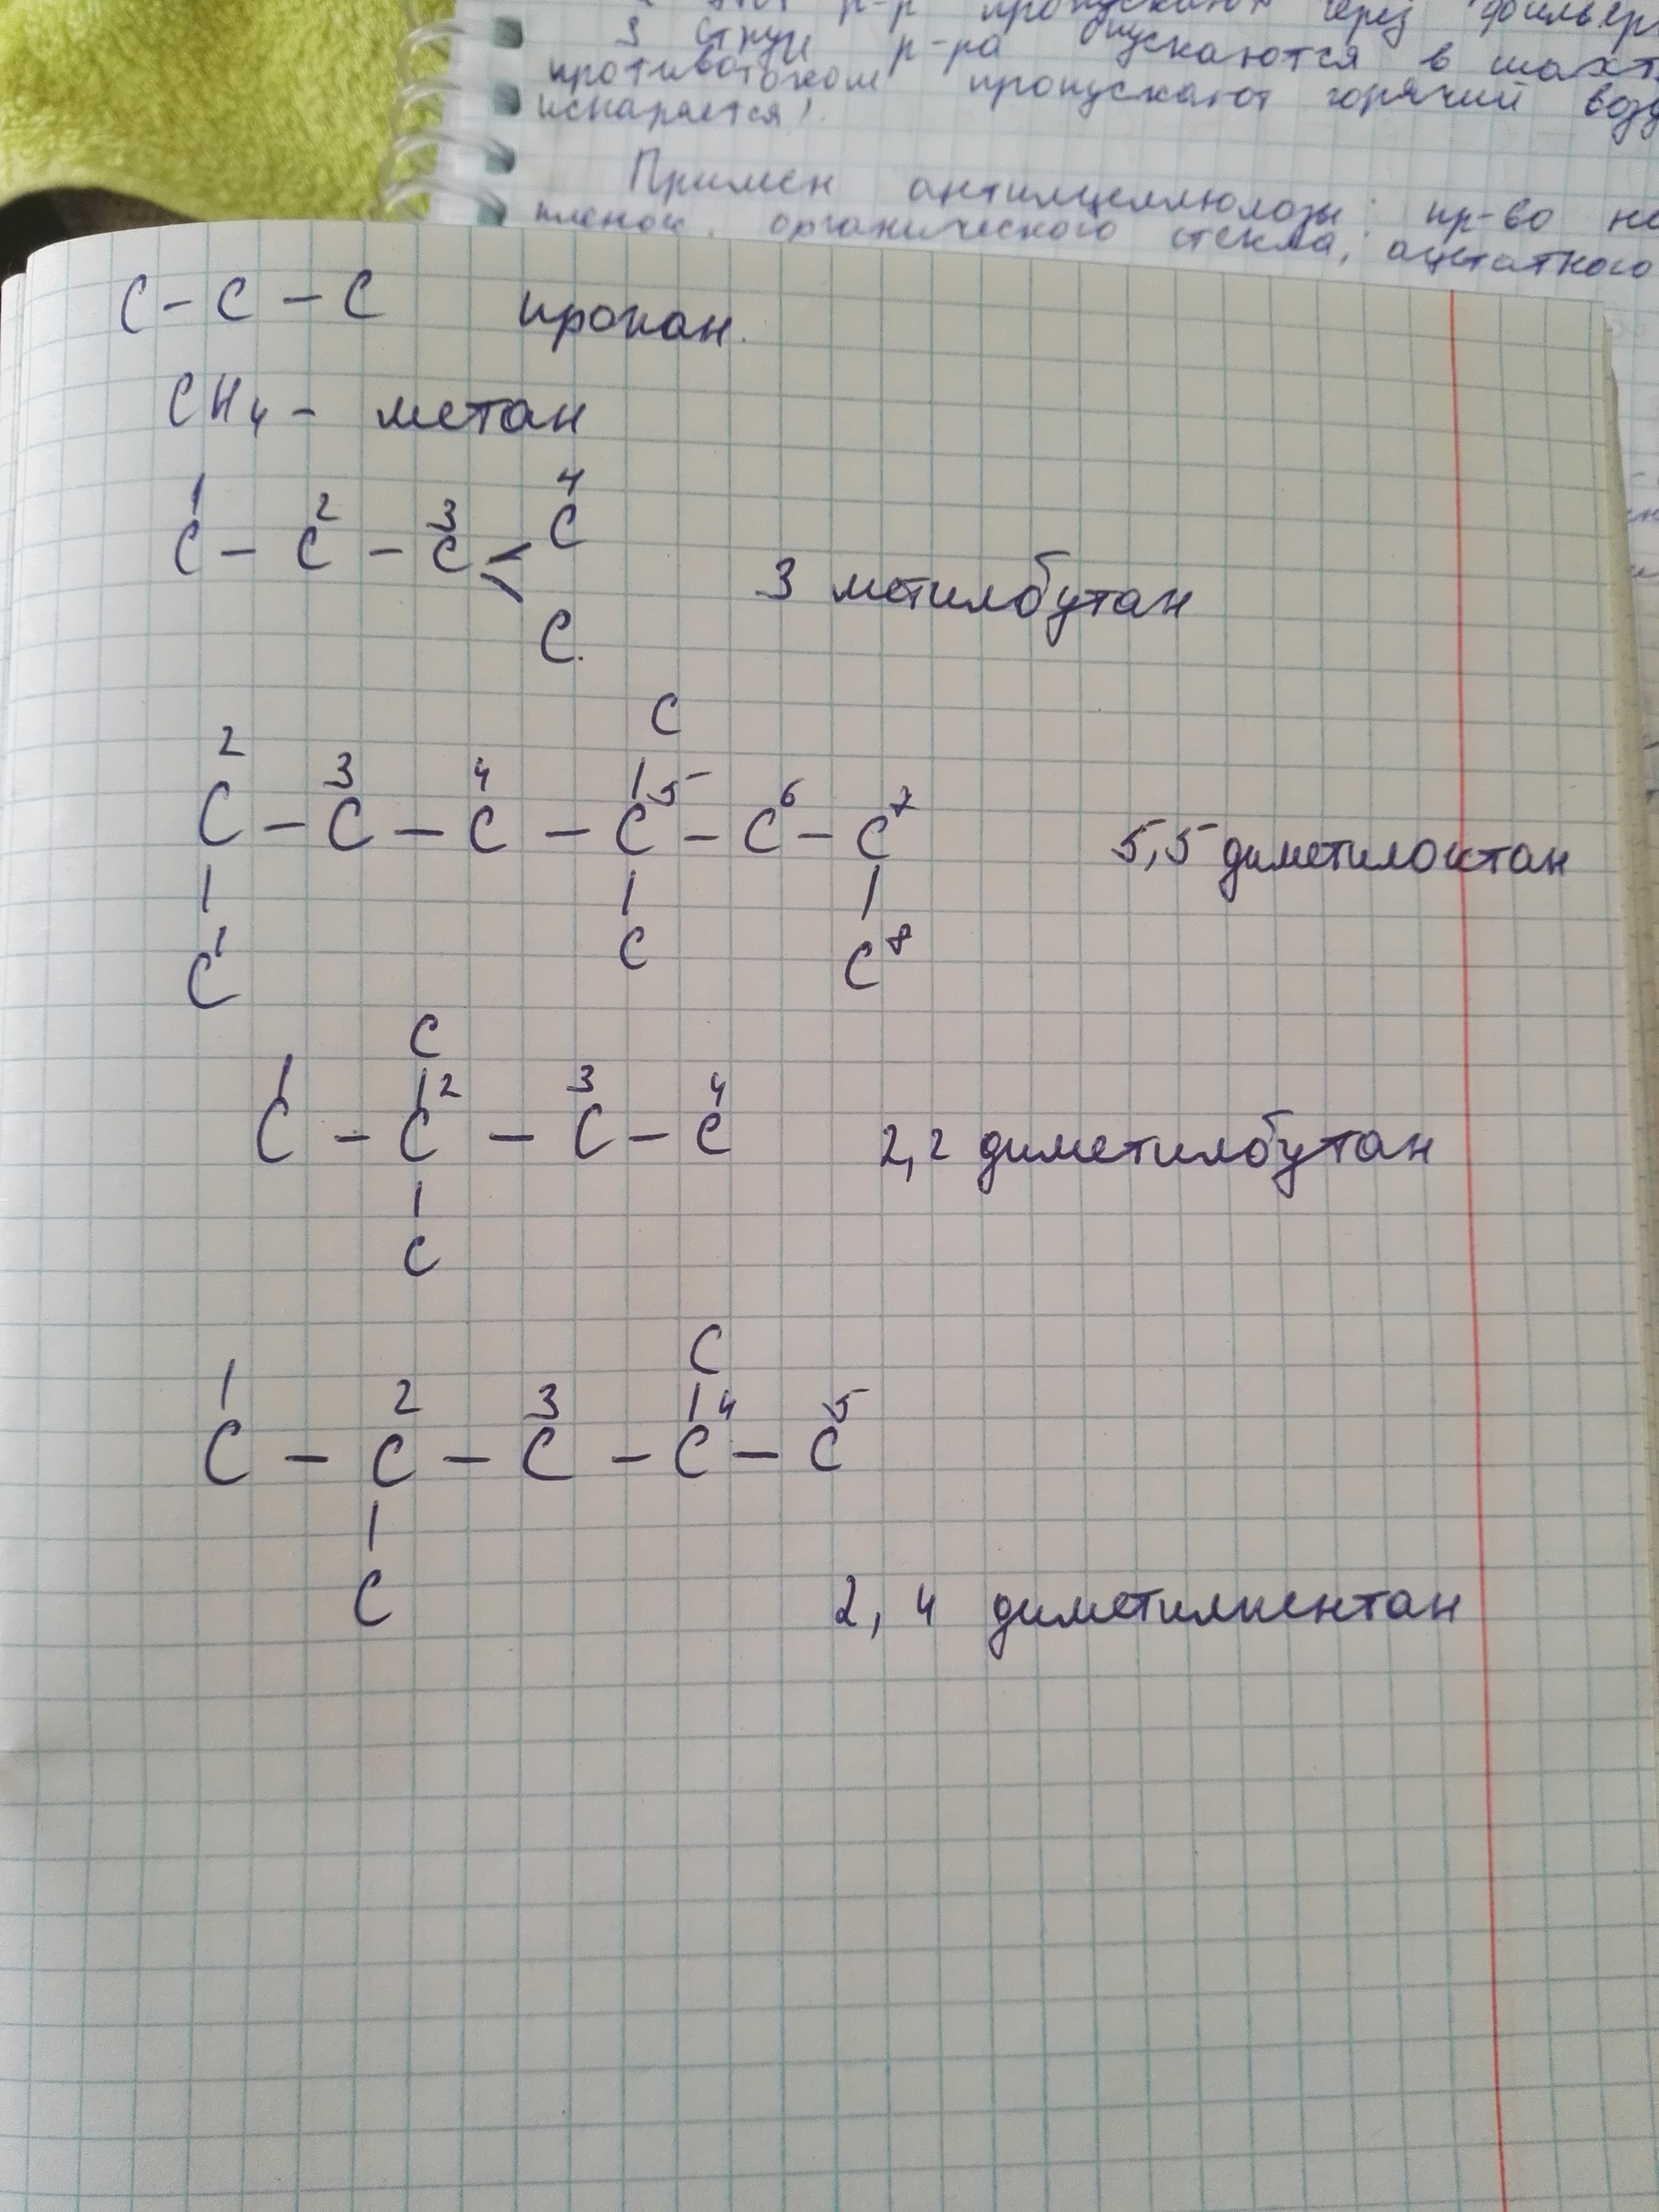 р-р пропускают через фильер
3 струи р-ра опускаются в шахт
противотоком пропускают горячий возд
испаряется!
Примен антилцеллюлозы: пр-во не
пленок, органического стекла, ацетатного
C - C - C пропан.
CH4 - метан
1 2 3 4
C - C - C < C
3 метилбутан
C.
C
2 3 4 5 6 7
C - C - C - C - C - C 5,5 диметилоктан
C 1 C C 8
C
1 2 3 4
C - C - C - C 2,2 диметилбутан
C
C
1 2 3 4 5
C - C - C - C - C
C
2, 4 диметилпентан